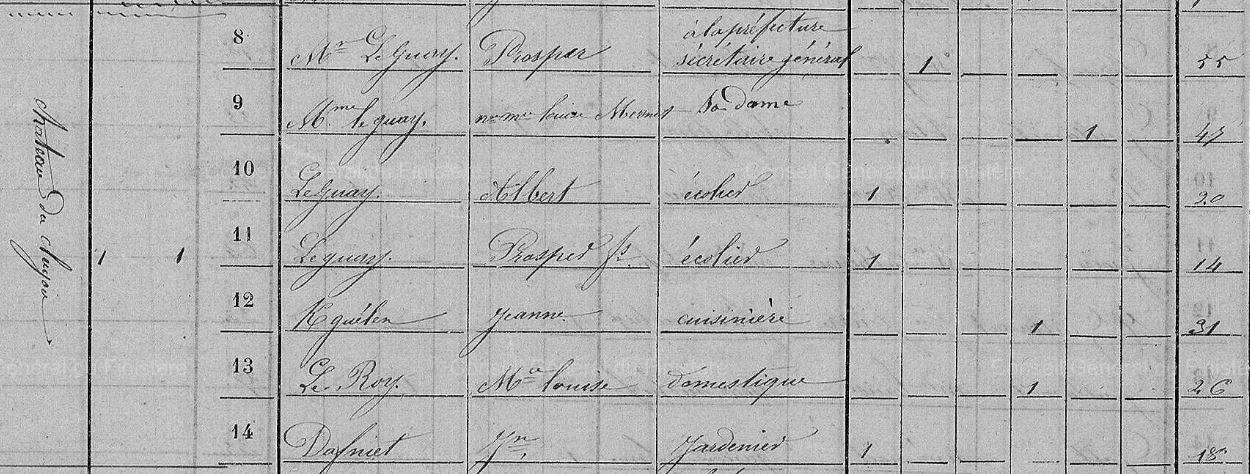 à la préfecture
8 Mr Le Guay. Prosper sécrétaire général 1 55
9 Mme le guay. née Mie louise sa dame 1 47
10 Le guay. Albert écolier 1 20
11 Le guay. Prosper fs. écolier 1 14
12 Kguélen Jeanne cuisinière 1 31
13 Le Roy. Ma louise domestique 1 26
14 Dafniet Jn. Jardenier 1 18
chateau du
1 1
Conseil Général du Finistère